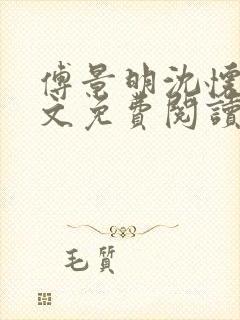 傅景明沈懷
文免費閱讀
毛質